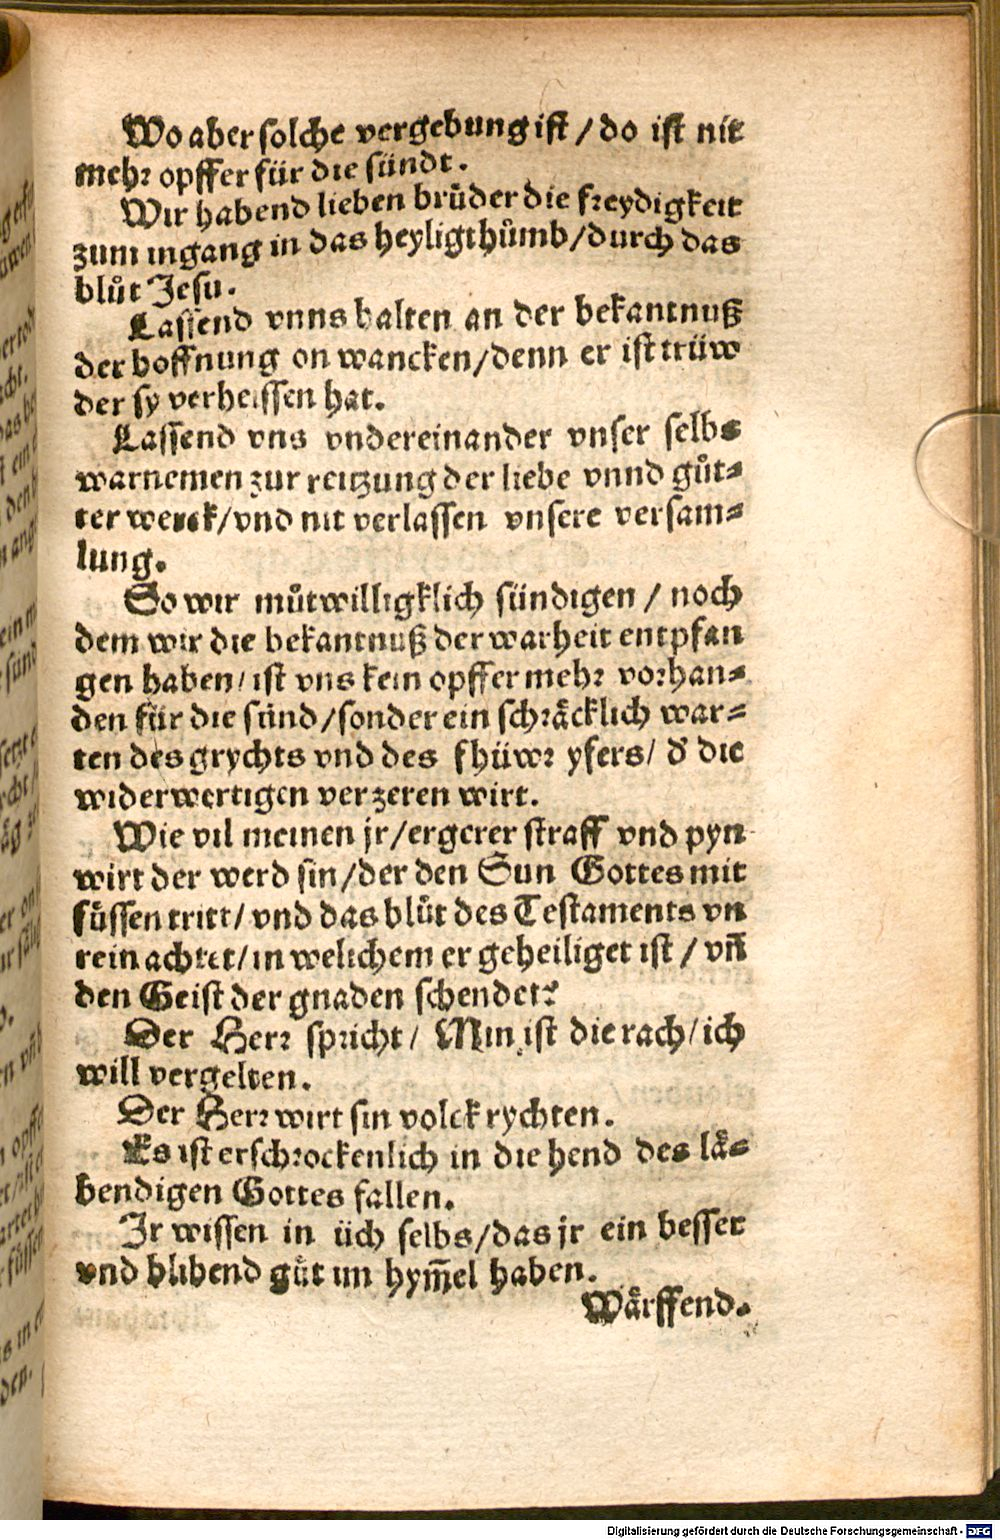 Wo aber solche vergebung ist / do ist nit
mehr opffer für die sündt.
Wir habend lieben brůder die freydigkeit
zum ingang in das heyligthůmb/durch das
blůt Jesu.
Lassend vnns halten an der bekantnuß
der hoffnung on wancken/denn er ist trüw
der sy verheissen hat.
Lassend vns vndereinander vnser selbs
warnemen zur reitzung der liebe vnnd gůt=
ter werck/vnd nit verlassen vnsere versam=
lung.
So wir můtwilligklich sündigen / noch
dem wir die bekantnuß der warheit entpfan
gen haben/ist vns kein opffer mehr vorhan=
den für die sünd/sonder ein schräcklich war=
ten des grychts vnd des fhüwr yfers/ d' die
widerwertigen verzeren wirt.
Wie vil meinen jr/ergerer straff vnd pyn
wirt der werd sin/der den Sun Gottes mit
fůssen tritt/ vnd das blůt des Testaments vn
rein achtet/in welichem er geheiliget ist / vñ
den Geist der gnaden schendet?
Der Herr spricht / Min ist die rach/ich
will vergelten.
Der Herr wirt sin volck rychten.
Es ist erschrockenlich in die hend des lä=
bendigen Gottes fallen.
Jr wissen in üch selbs/das jr ein besser
vnd blibend gůt im hym̃el haben.
Wärffend.
Digitalisierung gefördert durch die Deutsche Forschungsgemeinschaft - DFG